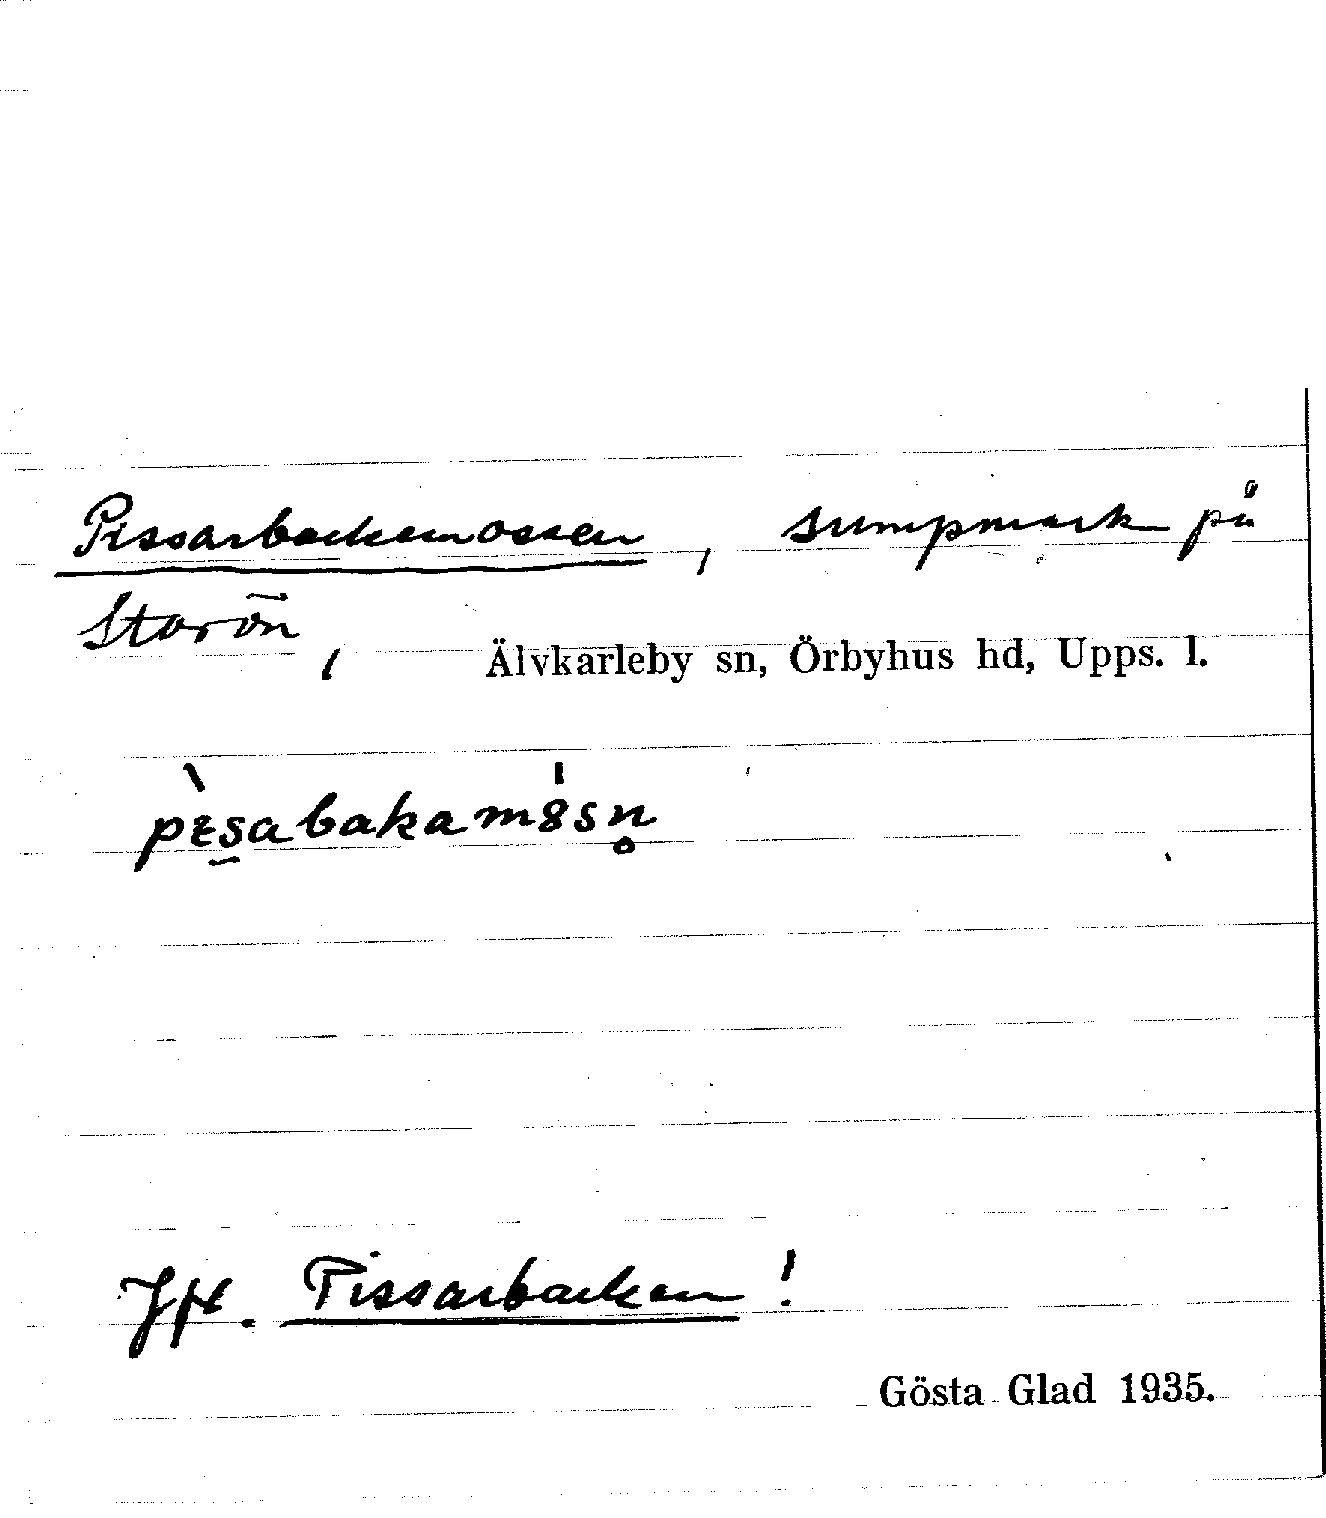 Pissarbackenmossen, sumpmark på
Storön,
Älvkarleby sn, Örbyhus hd, Upps. l.
Jfr. Pissarbacken!
Gösta Glad 1935.